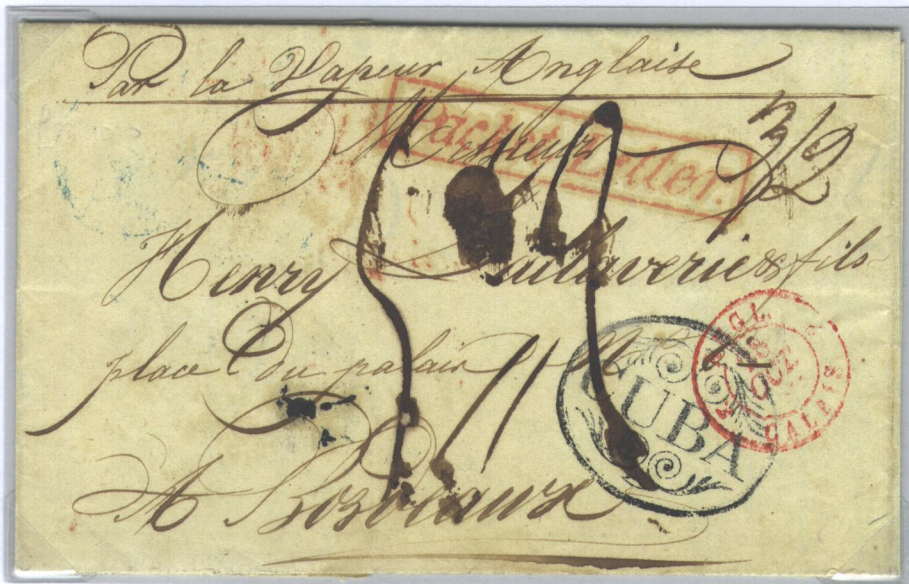 Par la Vapeur Anglaise
Packet Letter.
Messieurs
3/2
Henry & fils
place du palais
CUBA
CALAIS
A Bordeaux